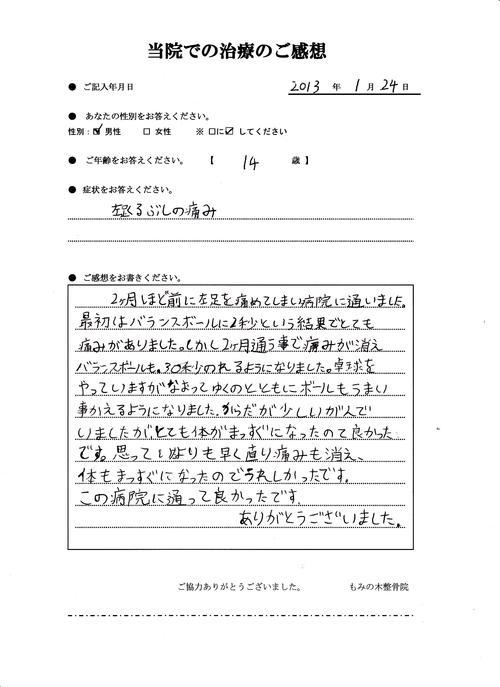 当院での治療のご感想
● ご記入年月日 2013 年 1 月 24 日
● あなたの性別をお答えください。
性別：☑ 男性 □ 女性 ※ □に☑ してください
● ご年齢をお答えください。 【 14 歳 】
● 症状をお答えください。
左くるぶしの痛み
● ご感想をお書きください。
2ヶ月ほど前に左足を痛めてしまい病院に通いました。
最初はバランスボールに2秒という結果でとても
痛みがありました。しかし2ヶ月通う事で痛みが消え
バランスボールも。30秒のれるようになりました。卓球を
やっていますがなよってゆくのとともにボールもうまい
事かえるようになりました。からだが少しいがんで
いましたが、とても体がまっすぐになったので良かった
です。思っていよりも早く直り痛みも消え、
体もまっすぐになったのでうれしかったです。
この病院に通って良かったです。
ありがとうございました。
ご協力ありがとうございました。 もみの木整骨院